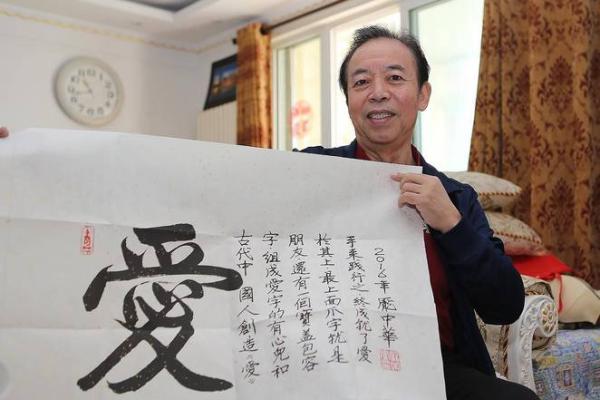 愛
古代中國人創造《愛》
字.組成愛字的有心兒和
朋友還有一個寶盖包容
於其上最上面爪字就是
手来践行之終成就了愛
2016華鵬中華